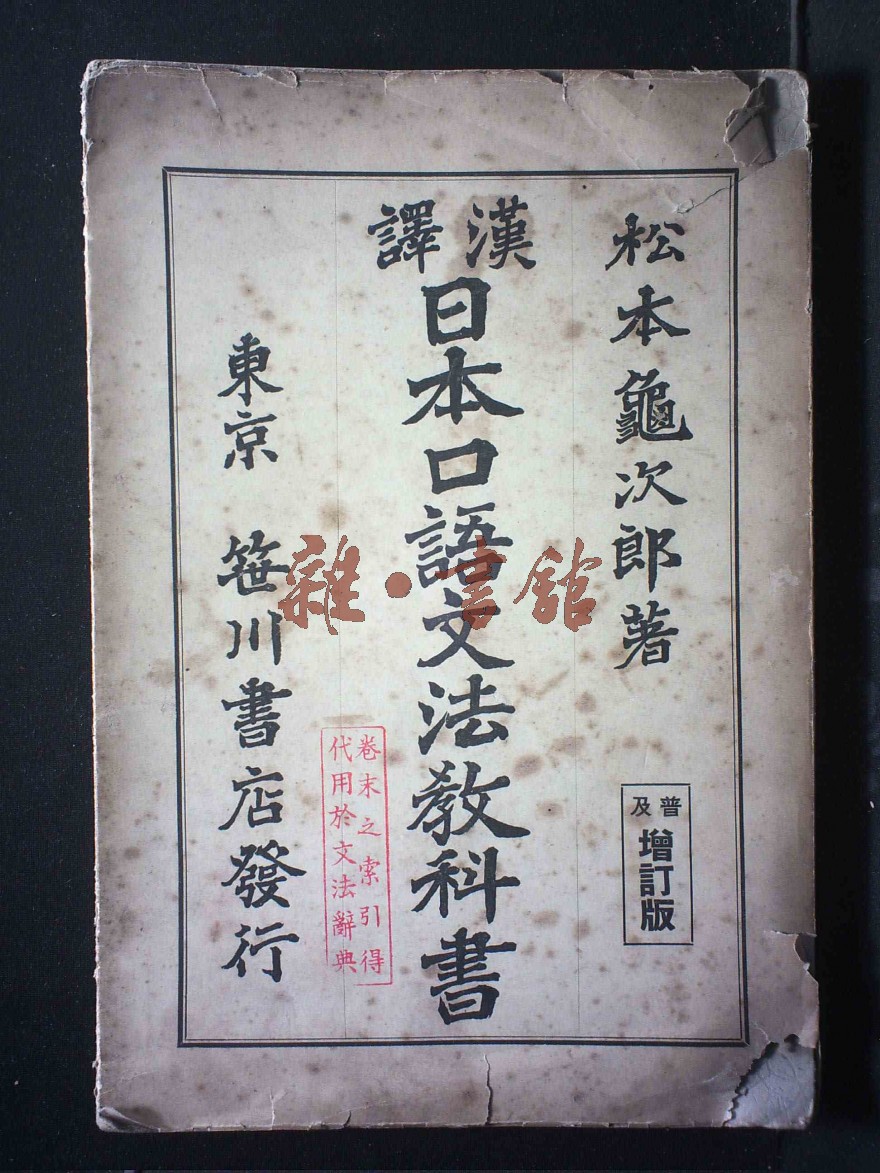 松本龜次郎著
普及
增訂版
漢譯
日本口語文法敎科書
卷末之索引得
代用於文法辭典
東京 笹川書店發行
雜·書館